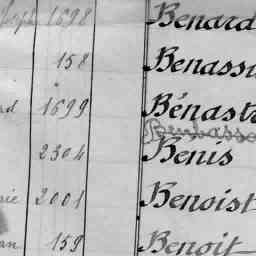 Jph 1698 Benard
158 Benassi
rd 1699 Bénast
Benbassa
2304 Benis
sie 2001 Benoist
an 159 Benoit